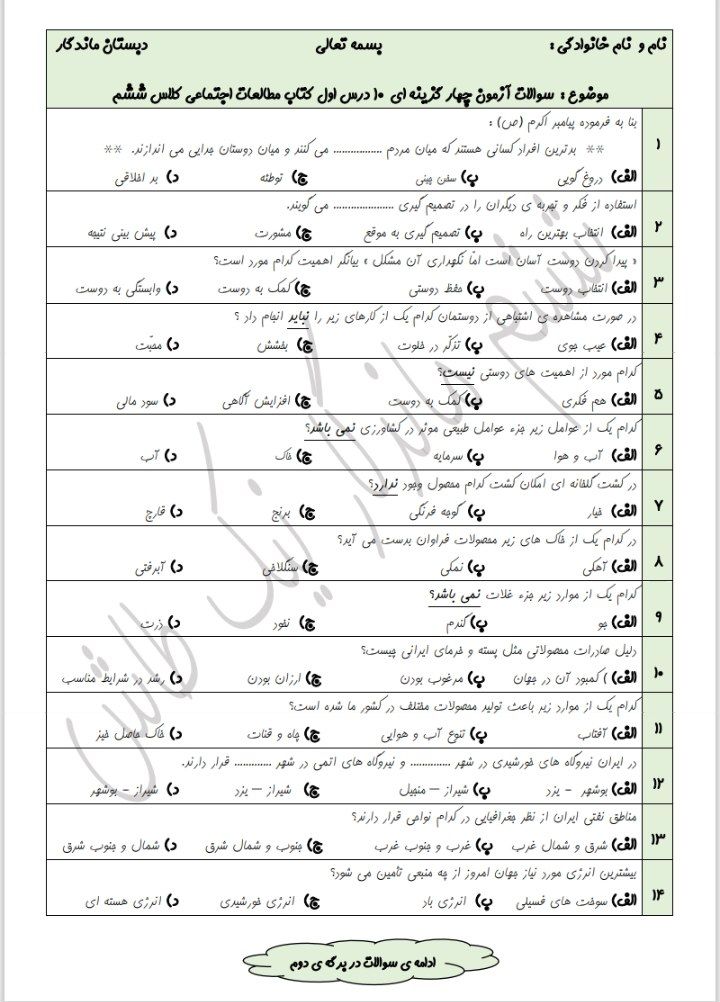 نام و نام خانوادگی : بسمه تعالی دبستان ماندگار
موضوع : سوالات آزمون چهار گزینه ای ۱۰ درس اول کتاب مطالعات اجتماعی کلاس ششم
۱ بنا به فرموده پیامبر اکرم (ص) :
** برترین افراد کسانی هستند که میان مردم ................. می کنند و میان دوستان جدایی می اندازند. **
الف) دروغ گویی ب) سخن چینی ج) توطئه د) بد اخلاقی
۲ استفاده از فکر و تجربه ی دیگران را در تصمیم گیری ..................... می گویند.
الف) انتخاب بهترین راه ب) تصمیم گیری به موقع ج) مشورت د) پیش بینی نتیجه
۳ « پیدا کردن دوست آسان است امّا نگهداری آن مشکل » بیانگر اهمیت کدام مورد است؟
الف) انتخاب دوست ب) حفظ دوستی ج) کمک به دوست د) وابستگی به دوست
۴ در صورت مشاهده ی اشتباهی از دوستمان کدام یک از کارهای زیر را نباید انجام داد ؟
الف) عیب جوی ب) تذکّر در خلوت ج) بخشش د) محبّت
۵ کدام مورد از اهمیت های دوستی نیست؟
الف) هم فکری ب) کمک به دوست ج) افزایش آگاهی د) سود مالی
۶ کدام یک از عوامل زیر جزء عوامل طبیعی موثر در کشاورزی نمی باشد؟
الف) آب و هوا ب) سرمایه ج) خاک د) آب
۷ در کشت گلخانه ای امکان کشت کدام محصول وجود ندارد؟
الف) خیار ب) گوجه فرنگی ج) برنج د) قارچ
۸ در کدام یک از خاک های زیر محصولات فراوان بدست می آید؟
الف) آهکی ب) نمکی ج) سنگلاخی د) آبرفتی
۹ کدام یک از موارد زیر جزء غلات نمی باشد؟
الف) جو ب) گندم ج) نخود د) ذرت
۱۰ دلیل صادرات محصولاتی مثل پسته و خرمای ایرانی چیست؟
الف) ) کمبود آن در جهان ب) مرغوب بودن ج) ارزان بودن د) رشد در شرایط مناسب
۱۱ کدام یک از موارد زیر باعث تولید محصولات مختلف در کشور ما شده است؟
الف) آفتاب ب) تنوع آب و هوایی ج) چاه و قنات د) خاک حاصل خیز
۱۲ در ایران نیروگاه های خورشیدی در شهر .............. و نیروگاه های اتمی در شهر ............. قرار دارند.
الف) بوشهر - یزد ب) شیراز – منجیل ج) شیراز – یزد د) شیراز - بوشهر
۱۳ مناطق نفتی ایران از نظر جغرافیایی در کدام نواحی قرار دارند؟
الف) شرق و شمال غرب ب) غرب و جنوب غرب ج) جنوب و شمال شرق د) شمال و جنوب شرق
۱۴ بیشترین انرژی مورد نیاز جهان امروز از چه منبعی تأمین می شود؟
الف) سوخت های فسیلی ب) انرژی باد ج) انرژی خورشیدی د) انرژی هسته ای
ادامه ی سوالات در برگه ی دوم
ششم ماندگار نیک طالش